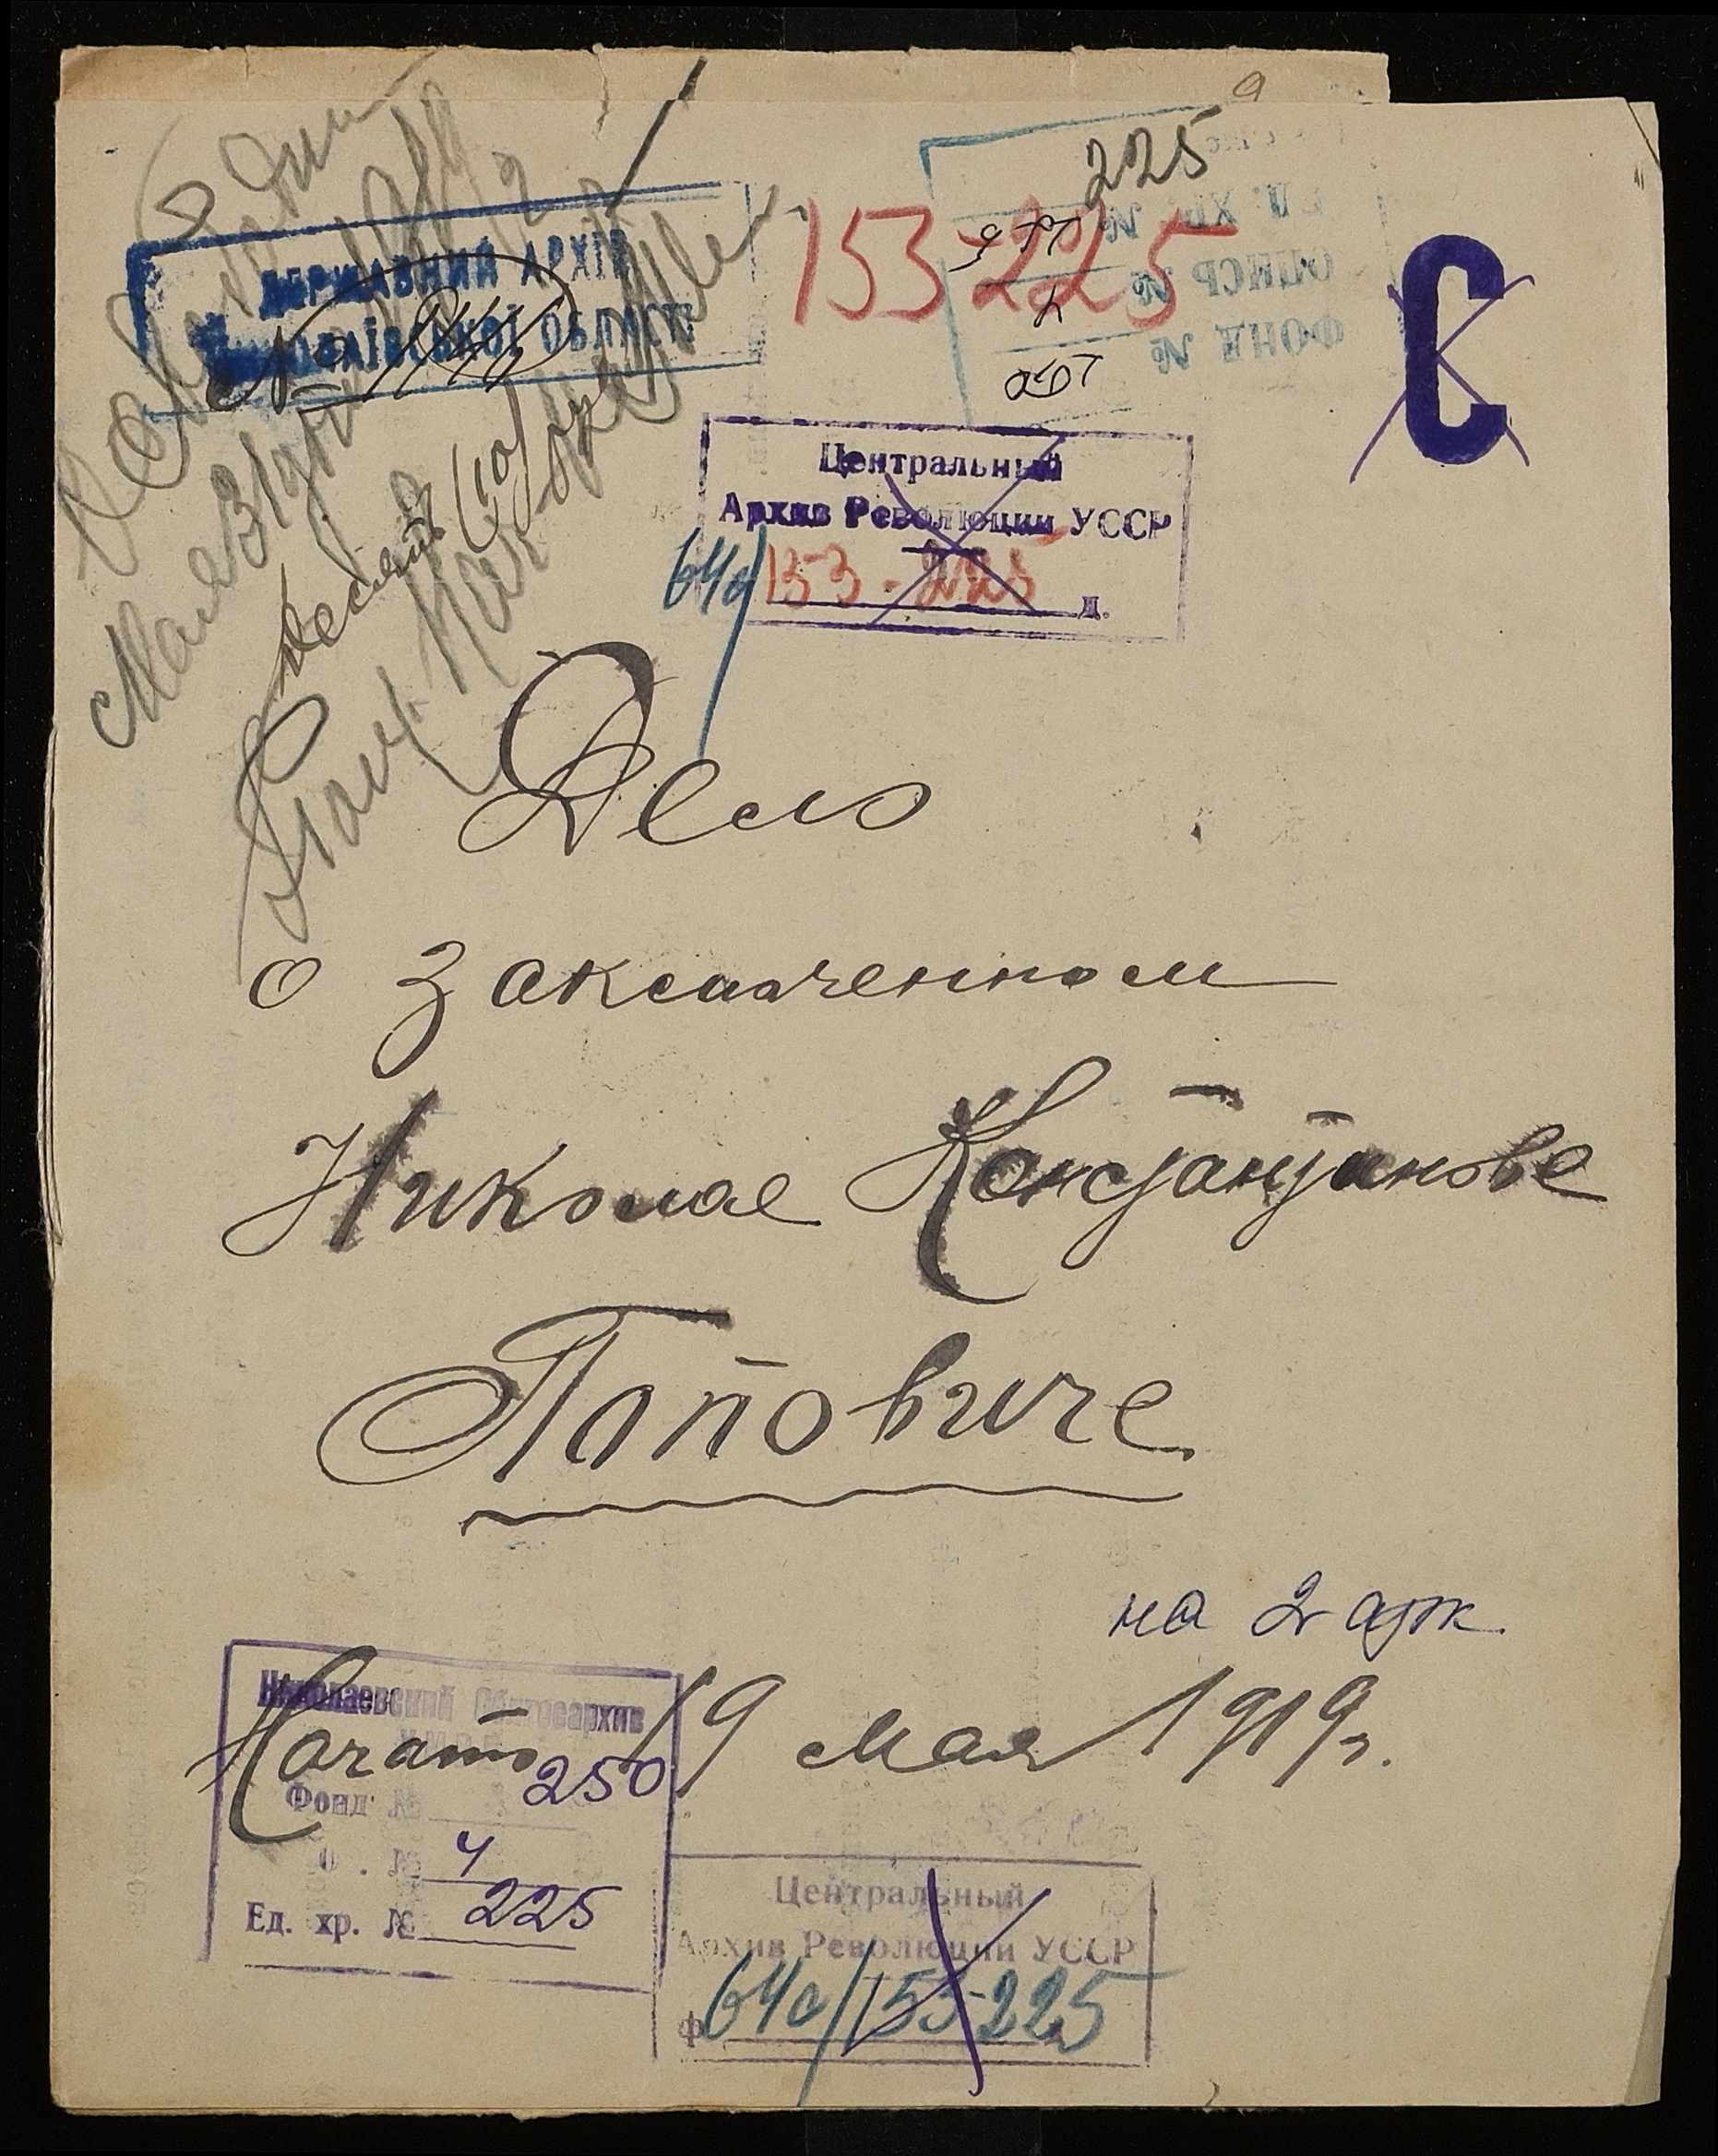 225
153-225
С
ДЕРЖАВНИЙ АРХІВ
МИКОЛАЇВСЬКОЇ ОБЛАСТІ
ЕД. ХР. №
ОПИСЬ №
ФОНД №
Центральный
Архив Революции УССР
64а/153-225 д.
Десять (10)
Дело
о заключенном
Николае Константинове
Поповиче
на 2х арк.
Начато 19 мая 1919 г.
Николаевский Облгосархив
Фонд № 250
О . № 4
Ед. хр. № 225
Центральный
Архив Революции УССР
Ф 64а/153-225